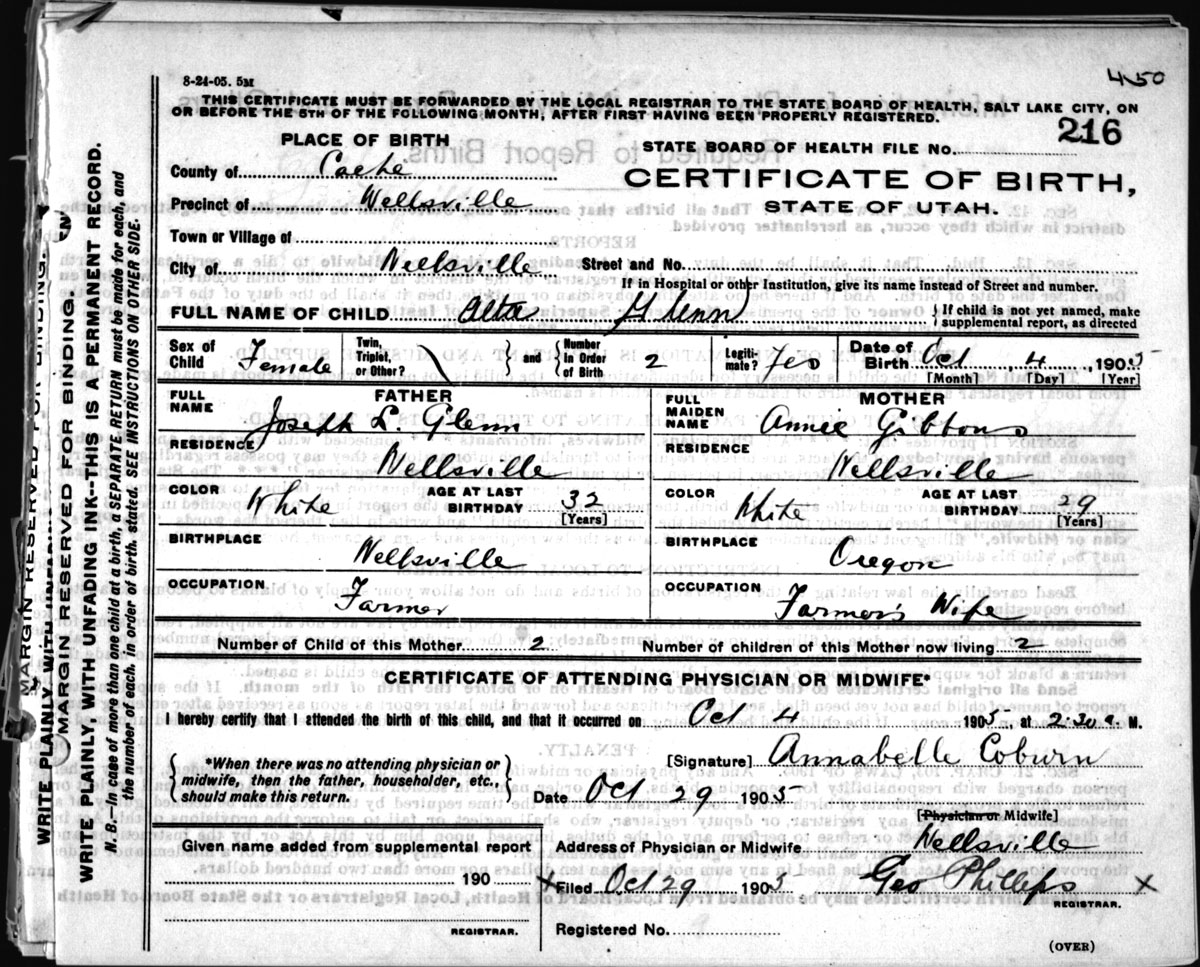 8-24-05. 5M
450
THIS CERTIFICATE MUST BE FORWARDED BY THE LOCAL REGISTRAR TO THE STATE BOARD OF HEALTH, SALT LAKE CITY, ON
OR BEFORE THE 5TH OF THE FOLLOWING MONTH, AFTER FIRST HAVING BEEN PROPERLY REGISTERED.
PLACE OF BIRTH
STATE BOARD OF HEALTH FILE NO. 216
County of Cache
CERTIFICATE OF BIRTH,
Precinct of Wellsville
STATE OF UTAH.
Town or Village of
City of Wellsville Street and No.
If in Hospital or other Institution, give its name instead of Street and number.
FULL NAME OF CHILD Alta Glenn } If child is not yet named, make supplemental report, as directed
Sex of Child Female Twin, Triplet, or Other? } and { Number in Order of Birth 2 Legiti-mate? Yes Date of Birth Oct, 4, 1905
[Month] [Day] [Year]
FATHER
MOTHER
FULL NAME Joseph L. Glenn
FULL MAIDEN NAME Annie Gibbons
RESIDENCE Wellsville
RESIDENCE Wellsville
COLOR White AGE AT LAST BIRTHDAY 32 [Years]
COLOR White AGE AT LAST BIRTHDAY 29 [Years]
BIRTHPLACE Wellsville
BIRTHPLACE Oregon
OCCUPATION Farmer
OCCUPATION Farmer's Wife
Number of Child of this Mother 2 Number of children of this Mother now living 2
CERTIFICATE OF ATTENDING PHYSICIAN OR MIDWIFE*
I hereby certify that I attended the birth of this child, and that it occurred on Oct 4 1905, at 2.30 a. M.
{ *When there was no attending physician or midwife, then the father, householder, etc., should make this return. }
[Signature] Annabelle Coburn
Date Oct 29 1905
[Physician or Midwife]
Given name added from supplemental report
190
REGISTRAR.
Address of Physician or Midwife Wellsville
X Filed Oct 29 1905 Geo Phillips X
REGISTRAR.
Registered No.
(OVER)
MARGIN RESERVED FOR BINDING.
WRITE PLAINLY WITH
MARGIN RESERVED FOR BINDING.
WRITE PLAINLY, WITH UNFADING INK--THIS IS A PERMANENT RECORD.
N. B.--In case of more than one child at a birth, a SEPARATE RETURN must be made for each, and
the number of each, in order of birth, stated. SEE INSTRUCTIONS ON OTHER SIDE.